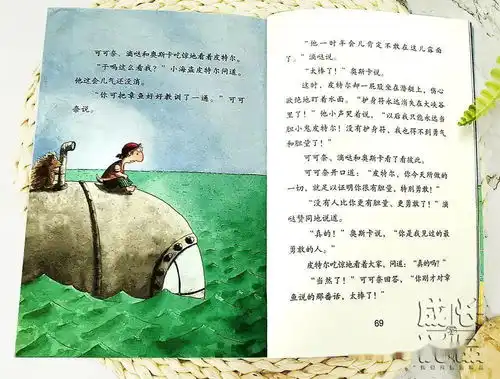 可可奈、滴哒和奥斯卡吃惊地看着皮特尔。
“干吗这么看我？”小海盗皮特尔问道。
他这会儿气还没消。
“你可把章鱼好好教训了一通。”可可
奈说。
“他一时半会儿肯定不敢在这儿露面
了。”滴哒说。
“太棒了！”奥斯卡说。
这时，皮特尔却一屁股坐在潜艇上，伤心
欲绝地盯着水面。“护身符永远消失在大峡谷
里了！”他小声咒着说，“以后我只能永远当
胆小鬼皮特尔！没有护身符，我也得不到勇气
和胆量了！”
可可奈、滴哒和奥斯卡看了看彼此。
可可奈开口道：“皮特尔，你今天所做的
一切，就足以证明你很有胆量，特别勇敢！”
“没有人比你更有胆量、更勇敢了！”滴
哒赞同地说道。
“真的！”奥斯卡说，“你是我见过的最
勇敢的人。”
皮特尔吃惊地看着大家，问道：“真的吗？”
“当然了！”可可奈回答，“你刚才对章
鱼说的那番话，太棒了！”
69